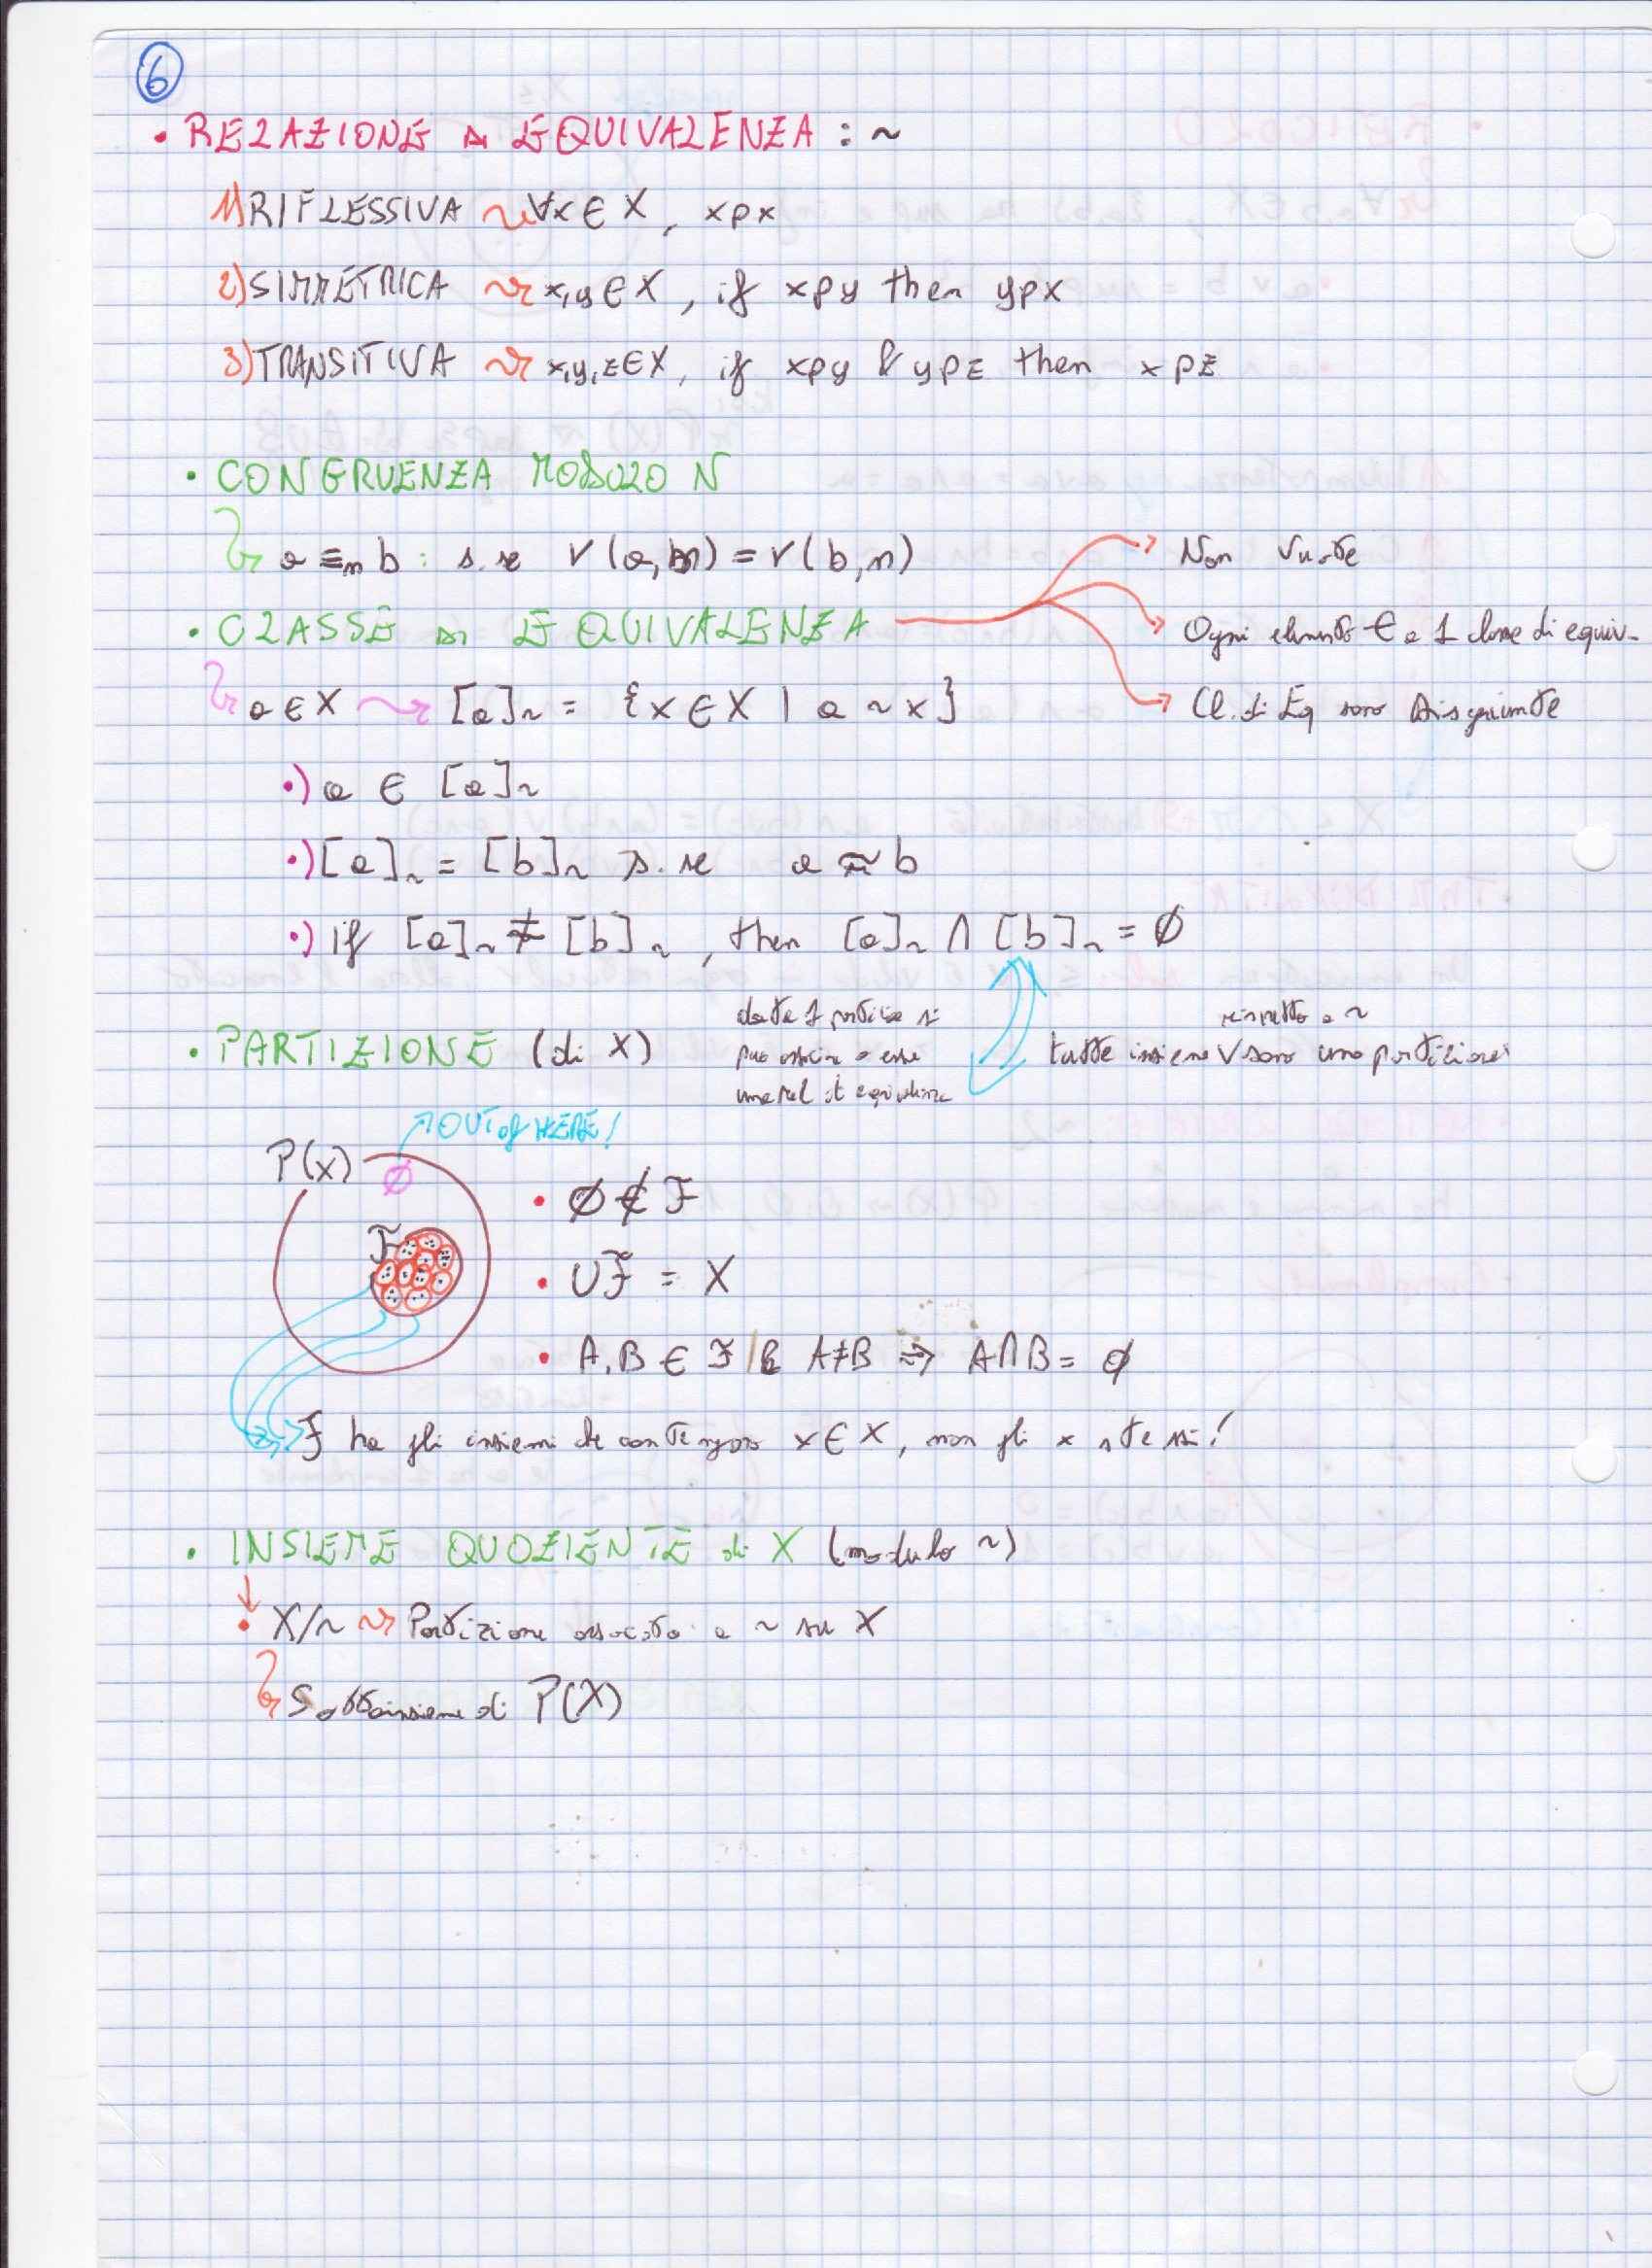 6
• RELAZIONE DI EQUIVALENZA : ~
1) RIFLESSIVA ~> ∀x ∈ X, xρx
2) SIMMETRICA ~> x,y ∈ X, if xρy then yρx
3) TRANSITIVA ~> x,y,z ∈ X, if xρy & yρz then xρz
• CONGRUENZA MODULO N
a ≡ₙ b : s.se r(a,n) = r(b,n)
Non Vuote
• CLASSE DI EQUIVALENZA
Ogni elemento ∈ a 1 classe di equiv.
a ∈ X ~> [a]~ = {x ∈ X | a ~ x}
Cl. di Eq sono Disgiunte
•) a ∈ [a]~
•) [a]~ = [b]~ s.se a ~ b
•) if [a]~ ≠ [b]~, then [a]~ ∩ [b]~ = ∅
• PARTIZIONE (di X)
data 1 partizione si
può associare a essa
una rel di equivalenza
rispetto a ~
tutte insieme V sono una partizione
OUT of HERE!
P(X)
∅
F
• ∅ ∉ F
• ∪F = X
• A, B ∈ F & A≠B => A∩B = ∅
F ha gli insiemi che contengono x ∈ X, non gli x stessi!
• INSIEME QUOZIENTE di X (modulo ~)
• X/~ ~> Partizione associata a ~ su X
Sottoinsieme di P(X)